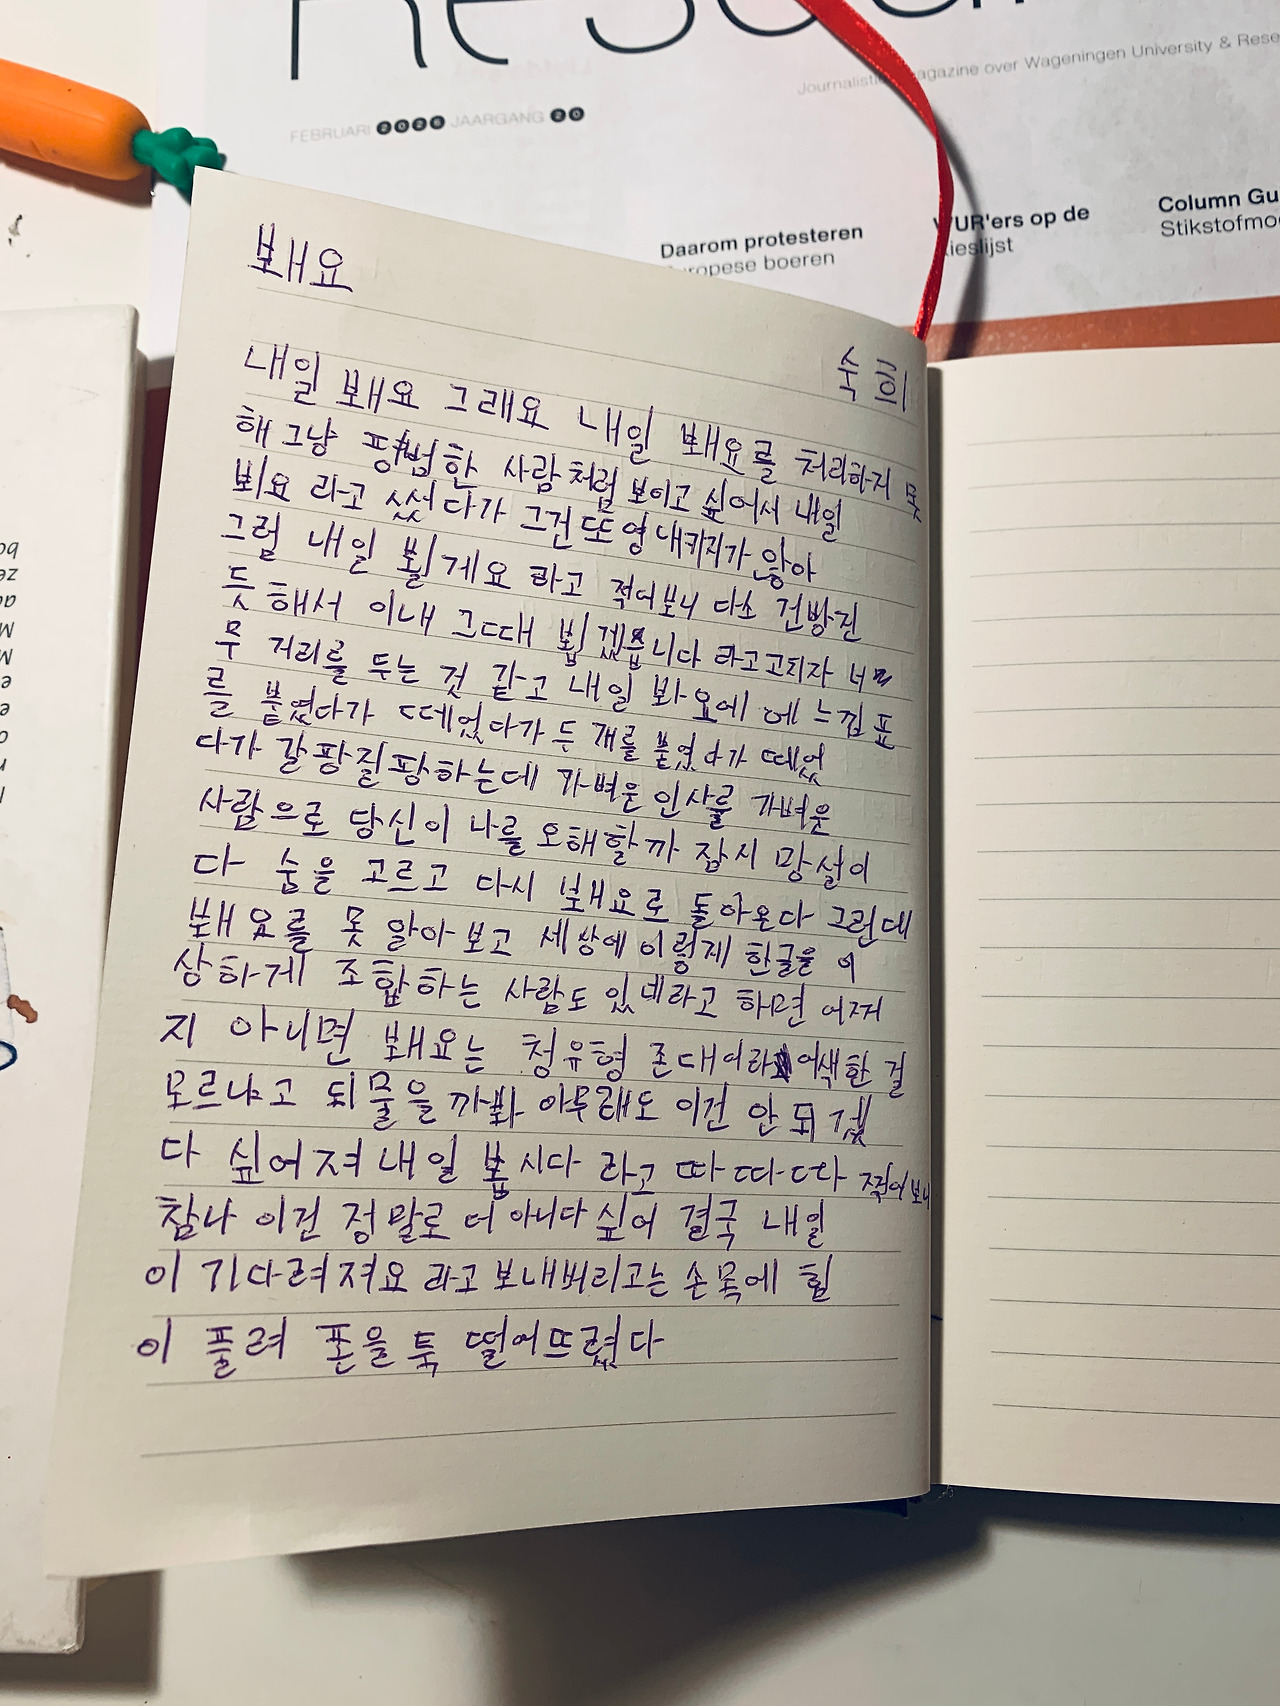 Journalistiek magazine over Wageningen University & Rese
FEBRUARI 2026 JAARGANG 20
Column Gu
Stikstofmo
WUR'ers op de
kieslijst
Daarom protesteren
Europese boeren
봬요
숙희
내일 봬요 그래요 내일 봬요를 처리하지 못
해 그냥 평범한 사람처럼 보이고 싶어서 내일
뵈요 라고 썼다가 그건 또 영 내키지가 않아
그럼 내일 뵐게요 라고 적어보니 다소 건방진
듯해서 이내 그때 뵙겠습니다 라고 고치자 너
무 거리를 두는 것 같고 내일 봐요에 에 느낌표
를 붙였다가 떼었다가 두 개를 붙였다가 떼었
다가 갈팡질팡하는데 가벼운 인사를 가벼운
사람으로 당신이 나를 오해할까 잠시 망설이
다 숨을 고르고 다시 봬요로 돌아온다 그런데
봬요를 못 알아보고 세상에 이렇게 한글을 이
상하게 조합하는 사람도 있네라고 하면 어쩌
지 아니면 봬요는 청유형 존대어라 어색한 걸
모르냐고 되물을까봐 아무래도 이건 안 되겠
다 싶어져 내일 봅시다 라고 따따따 적어보니
참나 이건 정말로 더 아니다 싶어 결국 내일
이 기다려져요 라고 보내버리고는 손목에 힘
이 풀려 폰을 툭 떨어뜨렸다